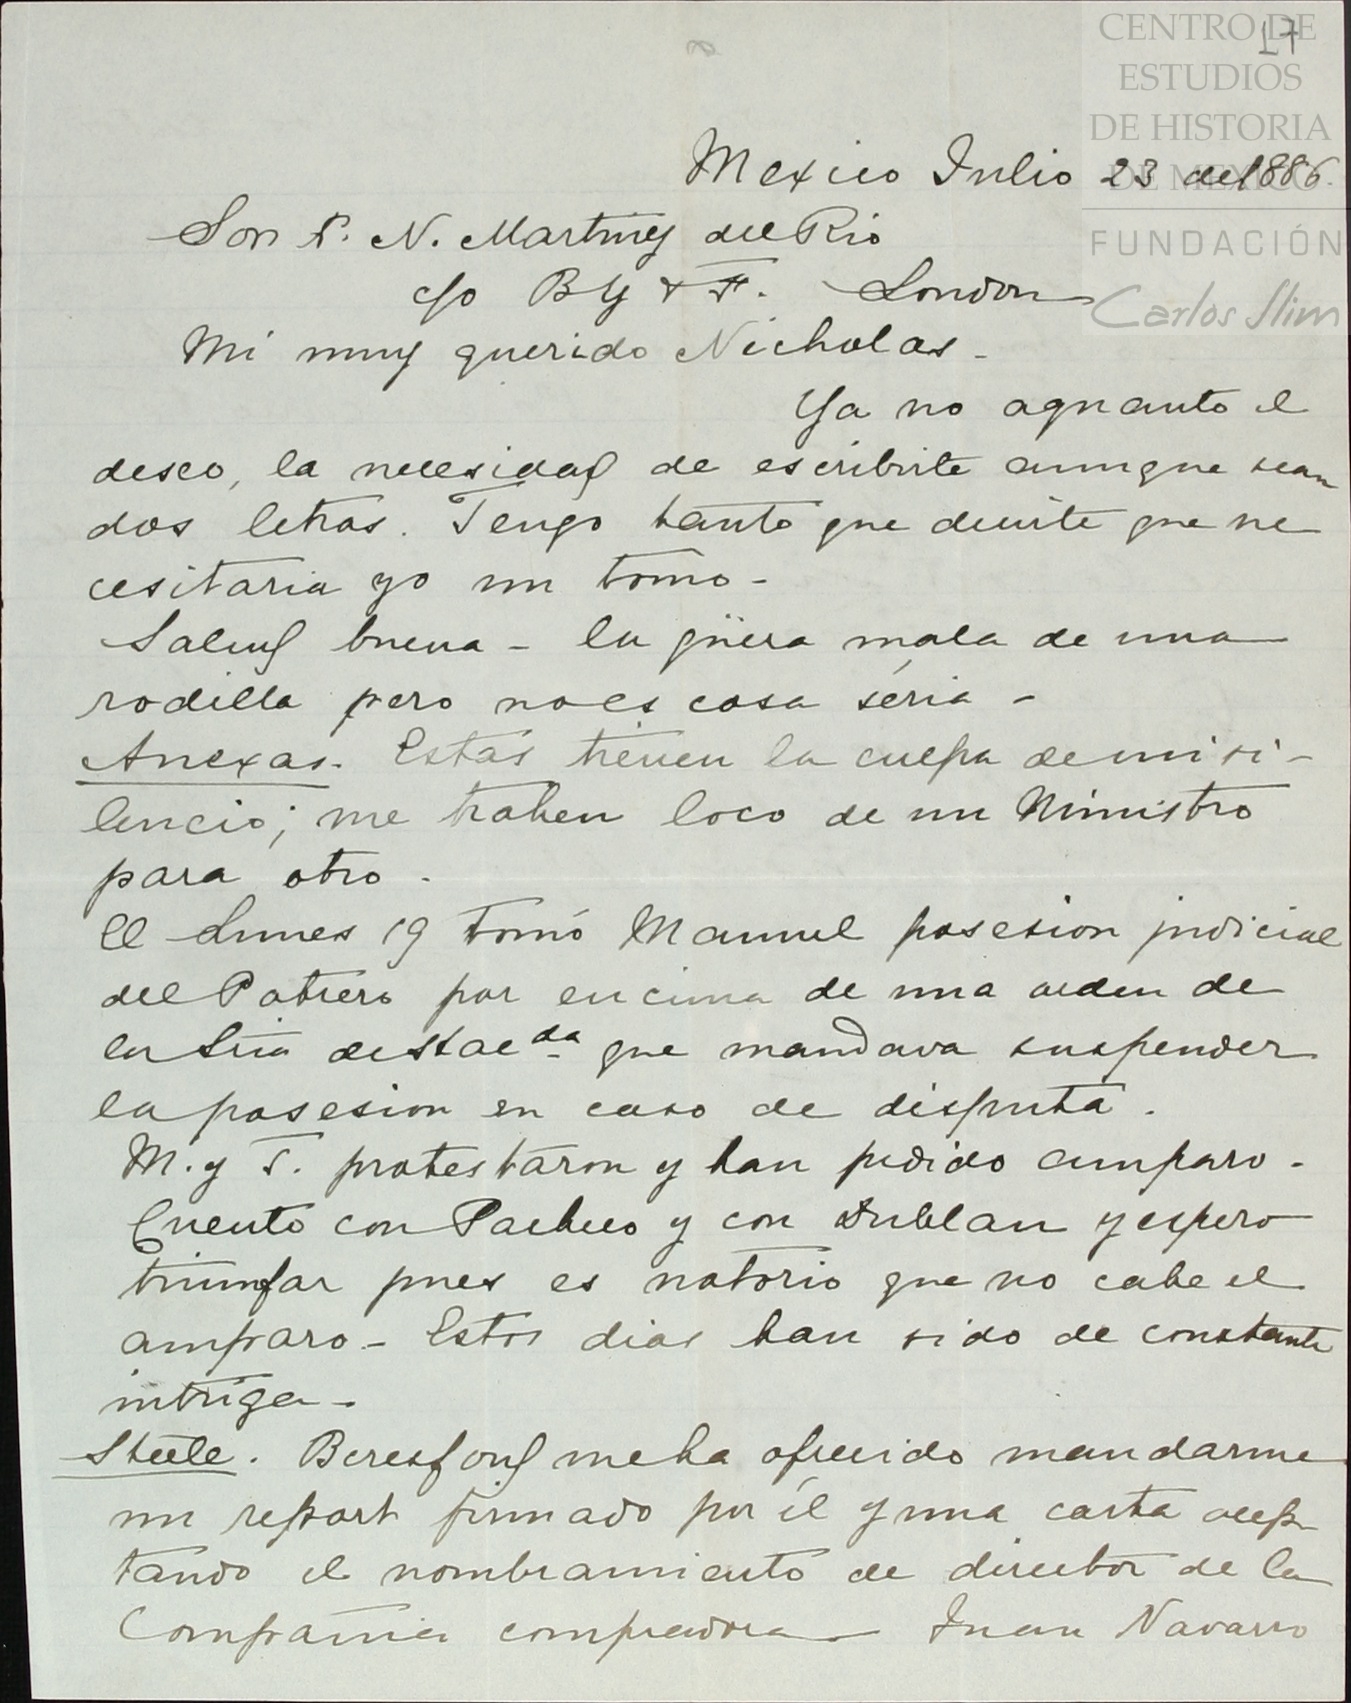 CENTRO DE
ESTUDIOS
DE HISTORIA
DE MEXICO
FUNDACIÓN
Carlos Slim
17
Mexico Julio 23 de 1886.
Sor P. N. Martinez del Rio
c/o B G & F. London
Mi muy querido Nicholas -
Ya no aguanto el
deseo, la necesidad de escribirte aunque sean
dos letras. Tengo tanto que decirte que ne
cesitaria yo un tomo -
Salud buena - la güera mala de una
rodilla pero no es cosa séria -
Anexas. Estas tienen la culpa de mi si-
lencio; me trahen loco de un Ministro
para otro.
El Lunes 19 tomó Manuel posesion judicial
del Potrero por encima de una orden de
la Sria de Hacda que mandava suspender
la posesion en caso de disputa.
M. y T. protestaron y han pedido amparo.
Cuento con Pacheco y con Dublan y espero
triunfar pues es notorio que no cabe el
amparo - Estos dias han sido de constante
intriga -
Steele. Beresford me ha ofrecido mandarme
un report firmado por él y una carta acep
tando el nombramiento de director de la
Compañia compradora - Juan Navarro